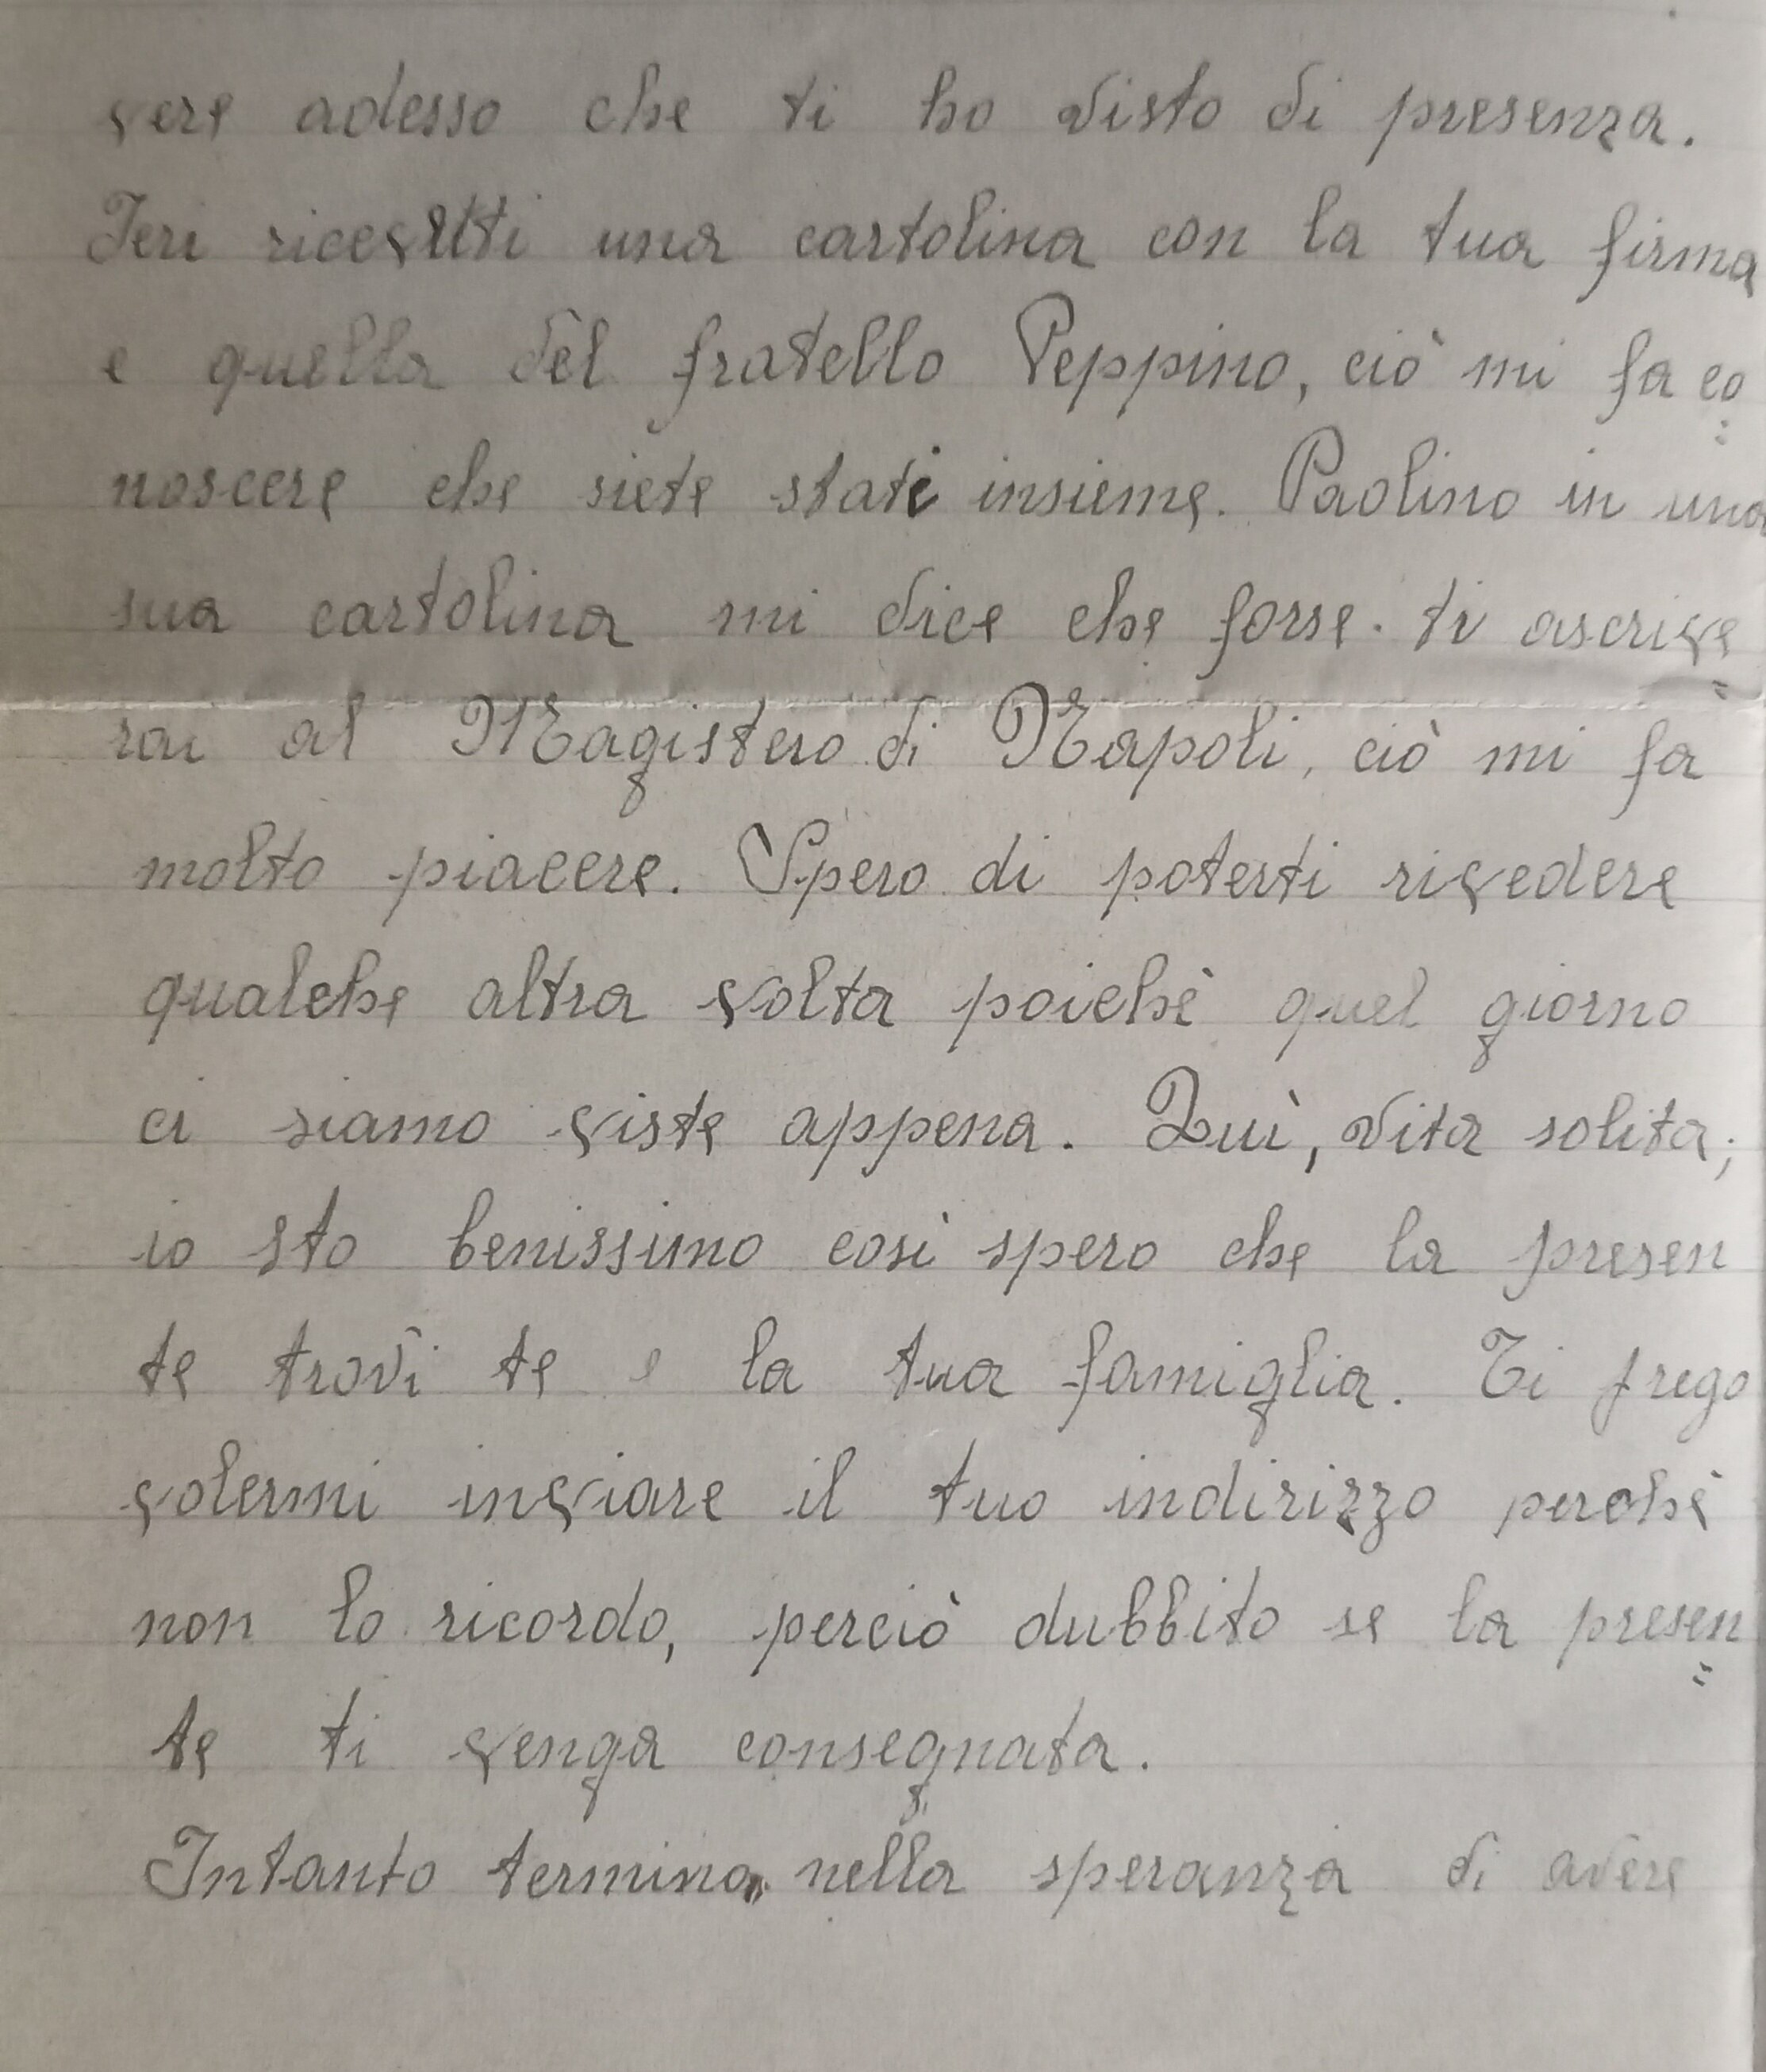 vere adesso che ti ho visto di presenza.
Ieri ricevetti una cartolina con la tua firma
e quella del fratello Peppino, ciò mi fa co
noscere che siete stati insieme. Paolino in una
sua cartolina mi dice che forse ti ascrive
rai al Magistero di Napoli, ciò mi fa
molto piacere. Spero di poterti rivedere
qualche altra volta poichè quel giorno
ci siamo viste appena. Quì, vita solita;
io sto benissimo così spero che la presen
te trovi te e la tua famiglia. Ti prego
volermi inviare il tuo indirizzo perchè
non lo ricordo, perciò dubbito se la presen
te ti venga consegnata.
Intanto termino nella speranza di avere